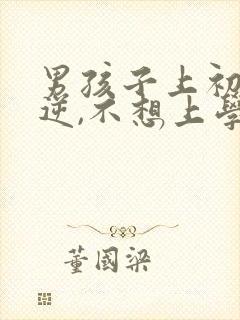 男孩子上初
逆,不想上学
董国梁